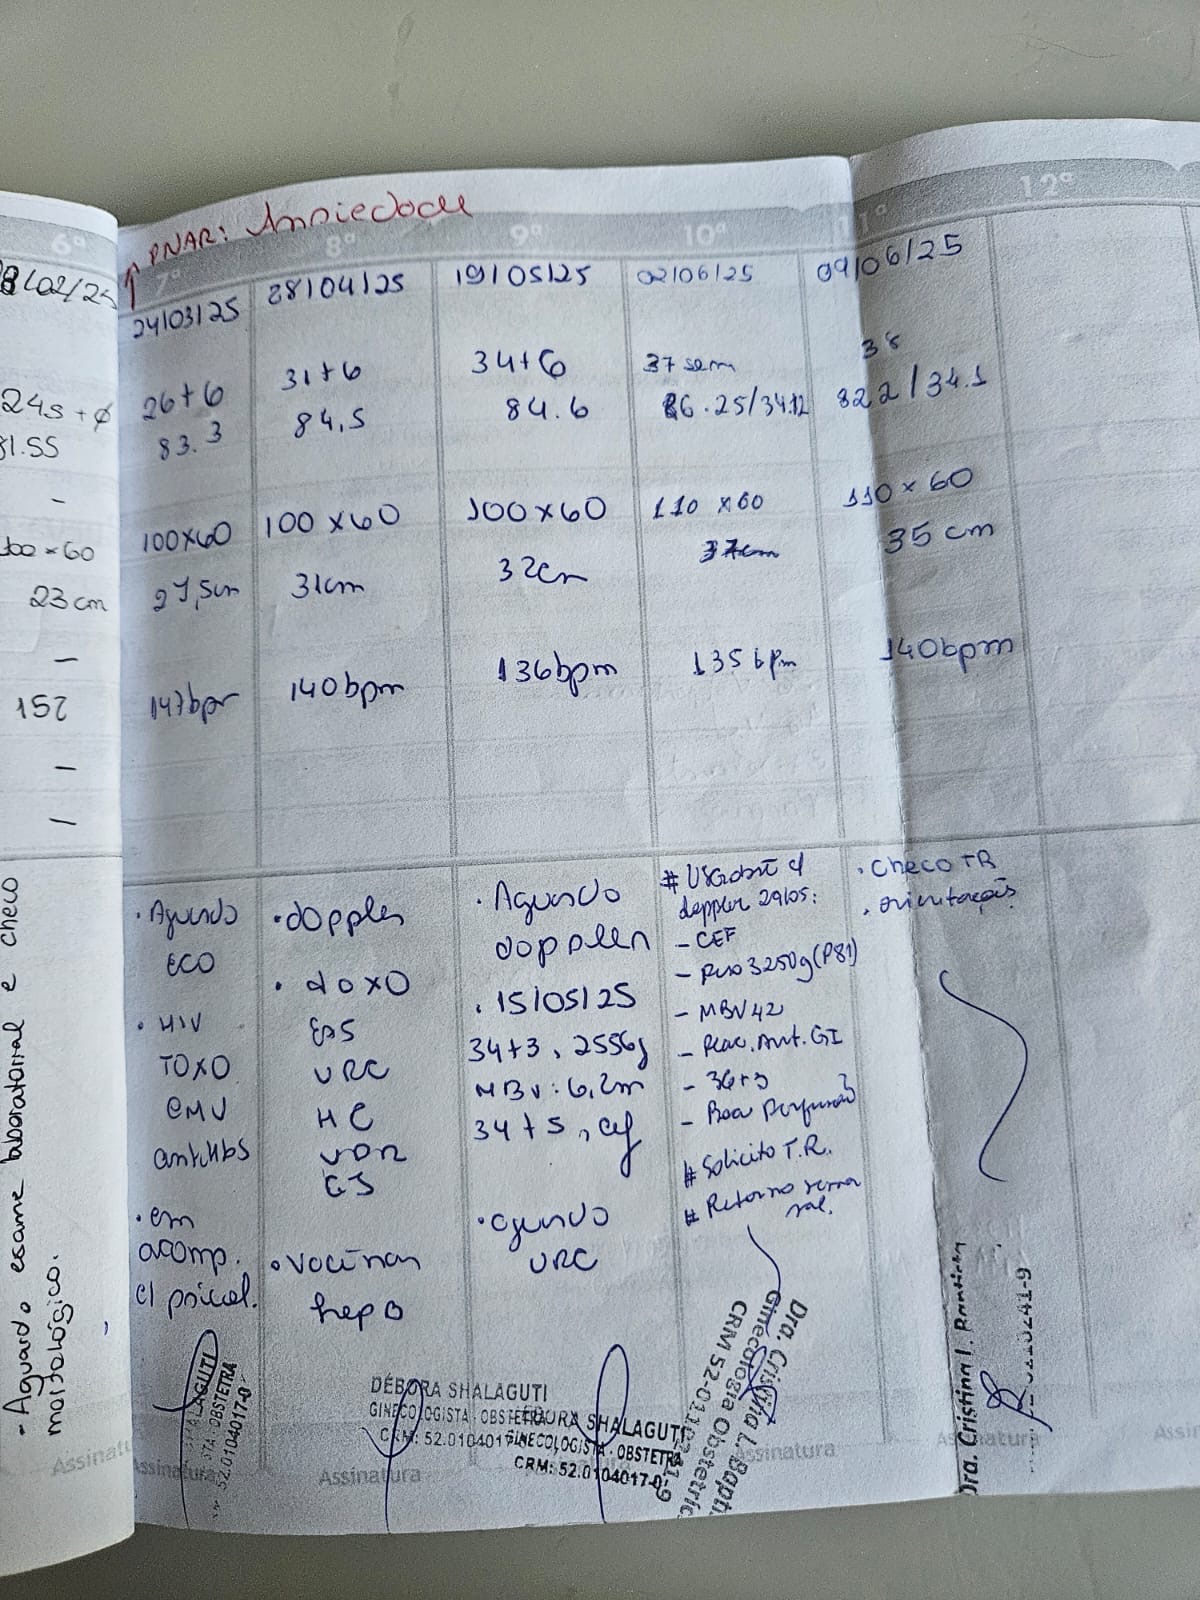 6ª
24s + ø
81.55
-
100 × 60
23 cm
-
152
-
-
- Aguardo exame laboratorial e checo
morfológico.
Assinatura
↑ PNAR: Ansiedade
7ª
24/03/25
26+6
83.3
100x60
27,5cm
147bpm
• Aguardo
ECO
• HIV
TOXO
CMV
antiHbs
• em
acomp.
c/ psicol.
SHALAGUTI
OBSTETRA
52.0104017-0
Assinatura
8ª
28/04/25
31+6
84,5
100 x 60
31cm
140bpm
• doppler
• toxo
EAS
URC
HC
VDR
GJ
• vacinas
hep B
DÉBORA SHALAGUTI
GINECOLOGISTA - OBSTETRA
CRM: 52.0104017-0
Assinatura
9ª
19/05/25
34+6
84.6
100x60
32cm
136bpm
• Aguardo
doppler
. 15/05/25
34+3, 2556g
MBV: 6,2m
34+5, cef
• aguardo
URC
DÉBORA SHALAGUTI
GINECOLOGISTA - OBSTETRA
CRM: 52.0104017-0
10ª
02/06/25
37 sem
86.25/34.12
110 x 60
37cm
135 bpm
# USG obst c/
doppler 29/05:
- CEF
- peso 3250g (P81)
- MBV 42
- Plac. Ant. GI
- 36+3
- Boa Perfusão
# Solicito T.R.
# Retorno sema
nal.
Dra. Cristina L. Bapti
Ginecologia Obstetric
CRM 52-0110241-9
Assinatura
11ª
09/06/25
38
82 2 / 34.1
110 × 60
35 cm
140bpm
. Checo TR
. orientações
Dra. Cristina L. Baptista
Assinatura
12ª